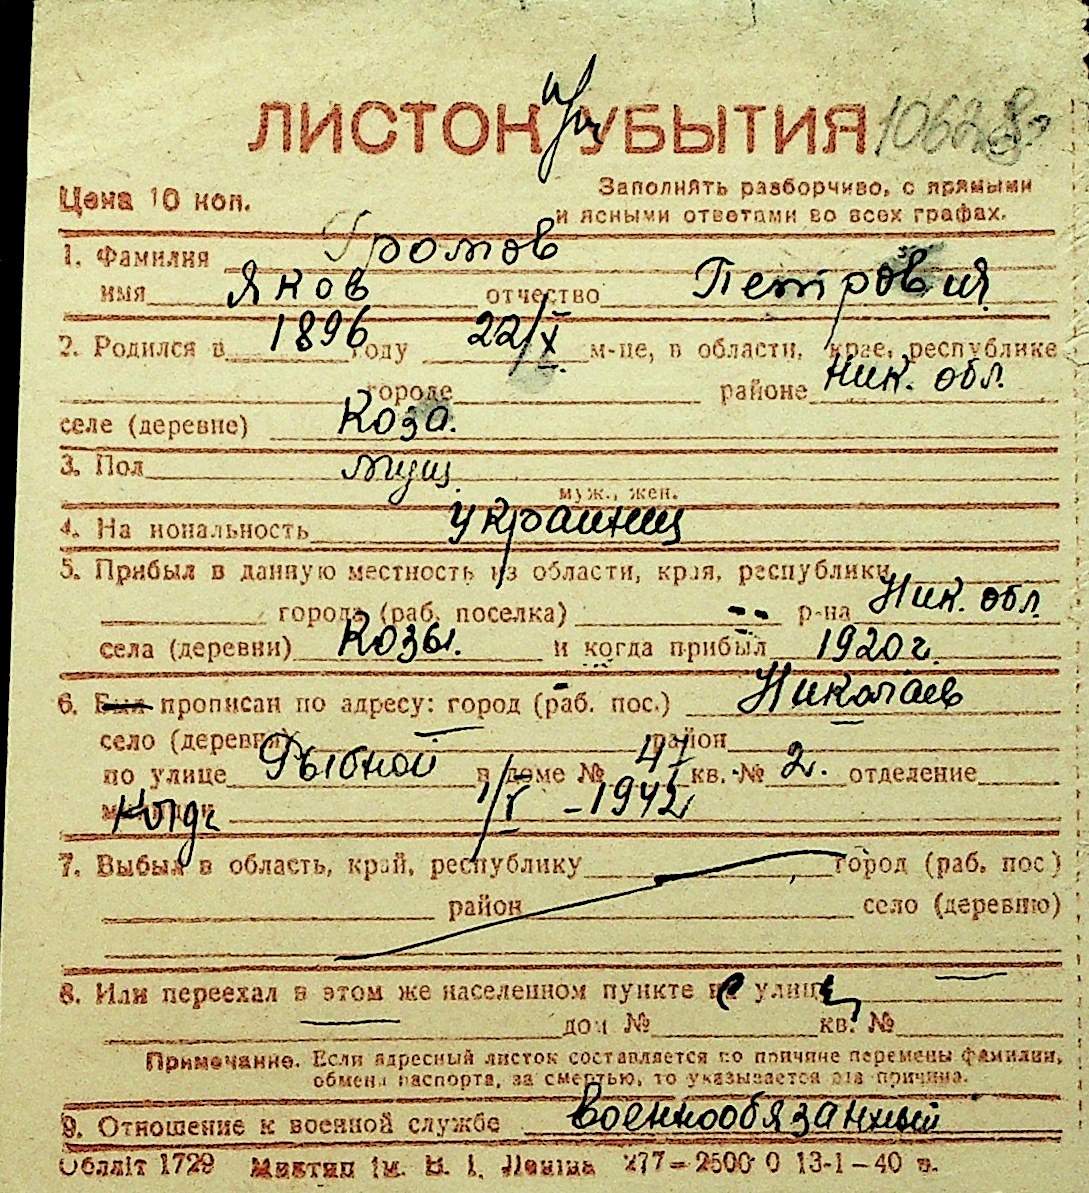 ЛИСТОК УБЫТИЯ
Цена 10 коп.
Заполнять разборчиво, с прямыми
и ясными ответами во всех графах.
1. Фамилия Громов
имя Яков отчество Петрович
2. Родился в 1896 году 22/X м-це, в области, крае, республике
городе районе Ник. обл.
селе (деревне) Коза.
3. Пол мущ.
муж., жен.
4. На иональность украинец
5. Прибыл в данную местность из области, края, республики
города (раб. поселка) р-на Ник. обл.
села (деревни) Козы. и когда прибыл 1920 г.
6. Был прописан по адресу: город (раб. пос.) Николаев
село (деревня) район
по улице Рыбной в доме № 47 кв. № 2. отделение
милиции 1/V - 1942
7. Выбыл в область, край, республику город (раб. пос.)
район село (деревню)
8. Или переехал в этом же населенном пункте улица
дом № кв. №
Примечание. Если адресный листок составляется по причине перемены фамилии,
обмена паспорта, за смертью, то указывается эта причина.
9. Отношение к военной службе военнообязанный
Обллiт 1729 iм. В. I. Ленiна 277 — 2500 0 13-1-40 в.